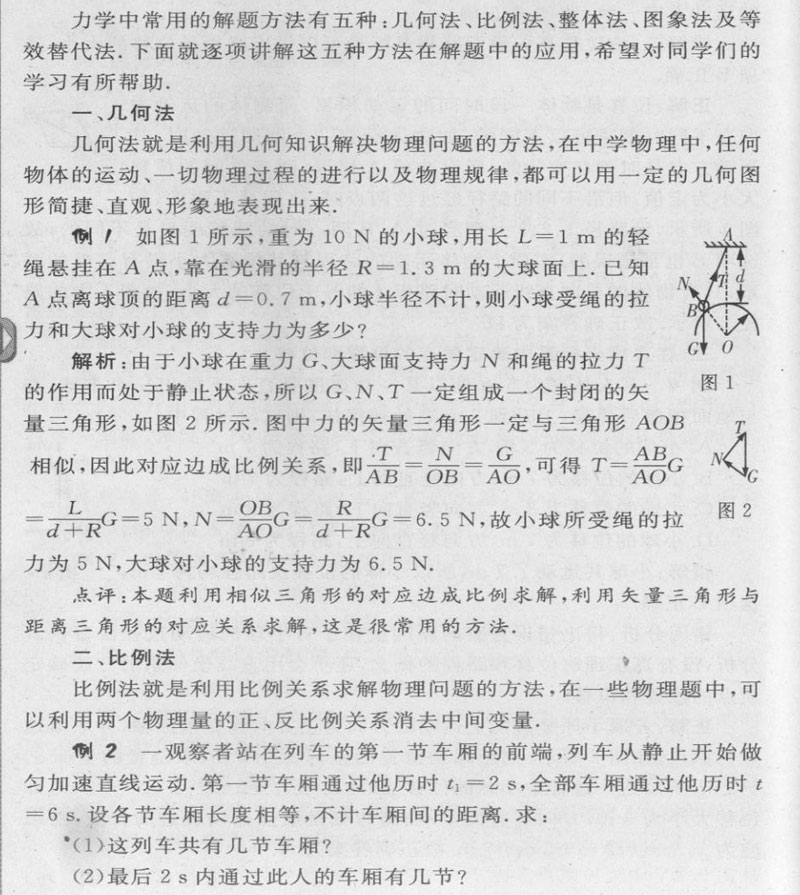 力学中常用的解题方法有五种:几何法、比例法、整体法、图象法及等
效替代法.下面就逐项讲解这五种方法在解题中的应用,希望对同学们的
学习有所帮助.
一、几何法
几何法就是利用几何知识解决物理问题的方法,在中学物理中,任何
物体的运动、一切物理过程的进行以及物理规律,都可以用一定的几何图
形简捷、直观、形象地表现出来.
例1 如图1所示,重为10 N的小球,用长L=1 m的轻
绳悬挂在A点,靠在光滑的半径R=1.3 m的大球面上.已知
A点离球顶的距离d=0.7 m,小球半径不计,则小球受绳的拉
力和大球对小球的支持力为多少?
A
T
d
N
B
G
O
图1
解析:由于小球在重力G、大球面支持力N和绳的拉力T
的作用而处于静止状态,所以G、N、T一定组成一个封闭的矢
量三角形,如图2所示.图中力的矢量三角形一定与三角形AOB
相似,因此对应边成比例关系,即T/AB=N/OB=G/AO,可得T=AB/AO G
=L/(d+R) G=5 N,N=OB/AO G=R/(d+R) G=6.5 N,故小球所受绳的拉
力为5 N,大球对小球的支持力为6.5 N.
T
N
G
图2
点评:本题利用相似三角形的对应边成比例求解,利用矢量三角形与
距离三角形的对应关系求解,这是很常用的方法.
二、比例法
比例法就是利用比例关系求解物理问题的方法,在一些物理题中,可
以利用两个物理量的正、反比例关系消去中间变量.
例2 一观察者站在列车的第一节车厢的前端,列车从静止开始做
匀加速直线运动.第一节车厢通过他历时t₁=2 s,全部车厢通过他历时t
=6 s.设各节车厢长度相等,不计车厢间的距离.求:
(1)这列车共有几节车厢?
(2)最后2 s内通过此人的车厢有几节?